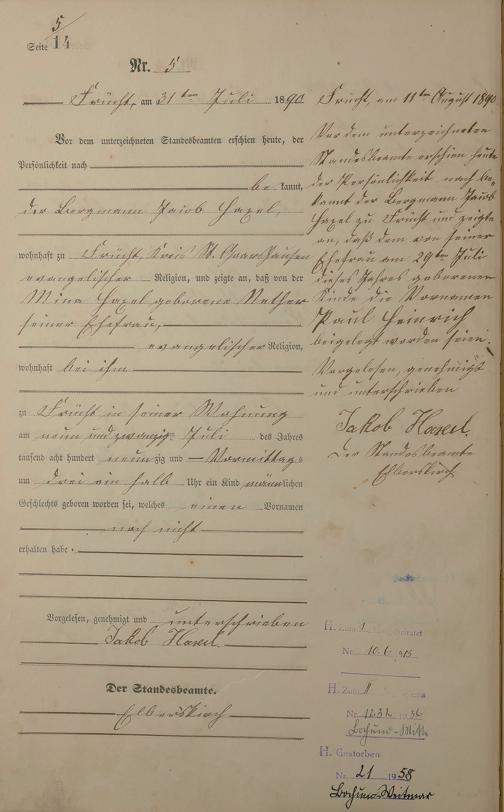 5
Seite 14
Nr. 5
Frücht, am 31ten Juli 1890
Vor dem unterzeichneten Standesbeamten erschien heute, der
Persönlichkeit nach
bekannt,
der Bergmann Jacob Hasel,
wohnhaft zu Frücht, Kreis St. Goarshausen
evangelischer Religion, und zeigte an, daß von der
Mina Hasel geborene
seiner Ehefrau,
evangelischer Religion,
wohnhaft bei ihm
zu Frücht in seiner Wohnung
am neun und zwanzig. Juli des Jahres
tausend acht hundert neunzig und — Vormittags
um drei ein halb Uhr ein Kind männlichen
Geschlechts geboren worden sei, welches einen Vornamen
noch nicht
erhalten habe.
Vorgelesen, genehmigt und unterschrieben
Jakob Hasel
Der Standesbeamte.
Elberskirch
Frücht, am 11ten August 1890
Vor dem unterzeichneten
Standesbeamte erschien heute
der Persönlichkeit nach be-
kannt der Bergmann Jacob
Hasel zu Frücht und zeigte
an, daß dem von seiner
Ehefrau am 29ten Juli
dieses Jahres geborenen
Kinde die Vornamen
Paul Heinrich
beigelegt worden seien.
Vorgelesen, genehmigt
und unterschrieben
Jakob Hasel
Der Standesbeamte
Elberskirch
H. Zum 1.
Nr. 10-6 1915
H. Zum II
Nr. 1232 1936
Bochum-Mitte
H. Gestorben
Nr. 21 1958
Bochum-Weitmar